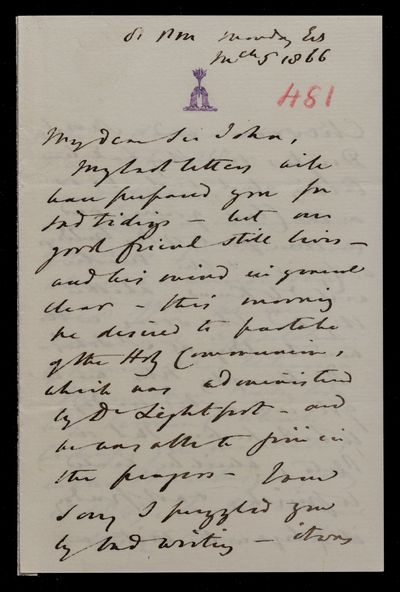 8. P.M. Monday Evg
Mch 5 1866
481
My dear Sir John,
My last letters will
have prepared you for
sad tidings – but our
good friend still lives –
and his mind in general
clear – this morning
he desired to partake
of the Holy Communion,
which was administered
by Dr Lightfoot – and
he was able to join in
the prayers – I am
sorry I puzzled you
by bad writing – it was